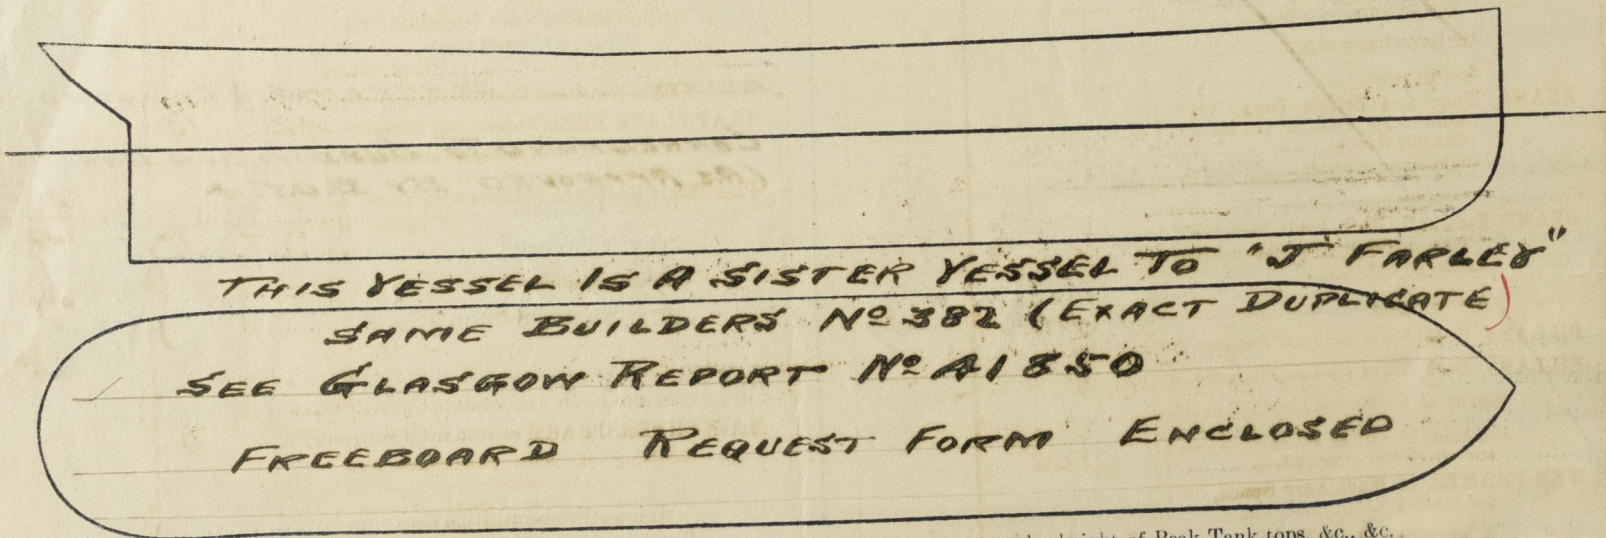 THIS VESSEL IS A SISTER VESSEL TO "J FARLEY"
SAME BUILDERS No 382 (EXACT DUPLICATE)
SEE GLASGOW REPORT No 41850
FREEBOARD REQUEST FORM ENCLOSED
height of Peak Tank tops, &c., &c.